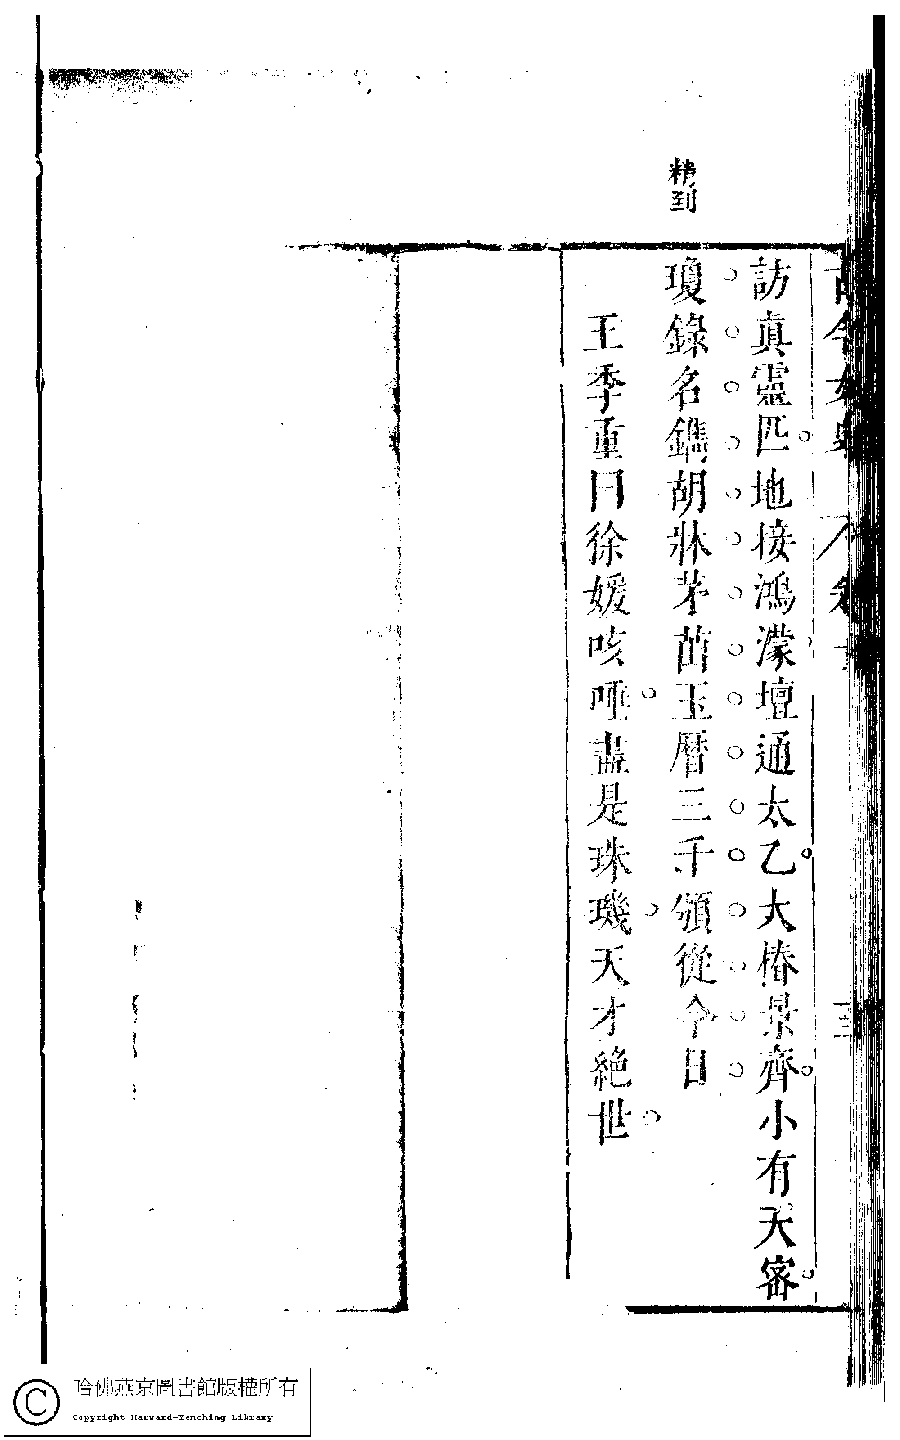 精到
訪真靈匹地接鴻濛壇通太乙大椿景齊小有天密
瓊錄名鐫胡牀茅茁玉曆三千頒從今日
王季重曰徐媛咳唾盡是珠璣天才絕世
哈佛燕京圖書館版權所有
Copyright Harvard-Yenching Library